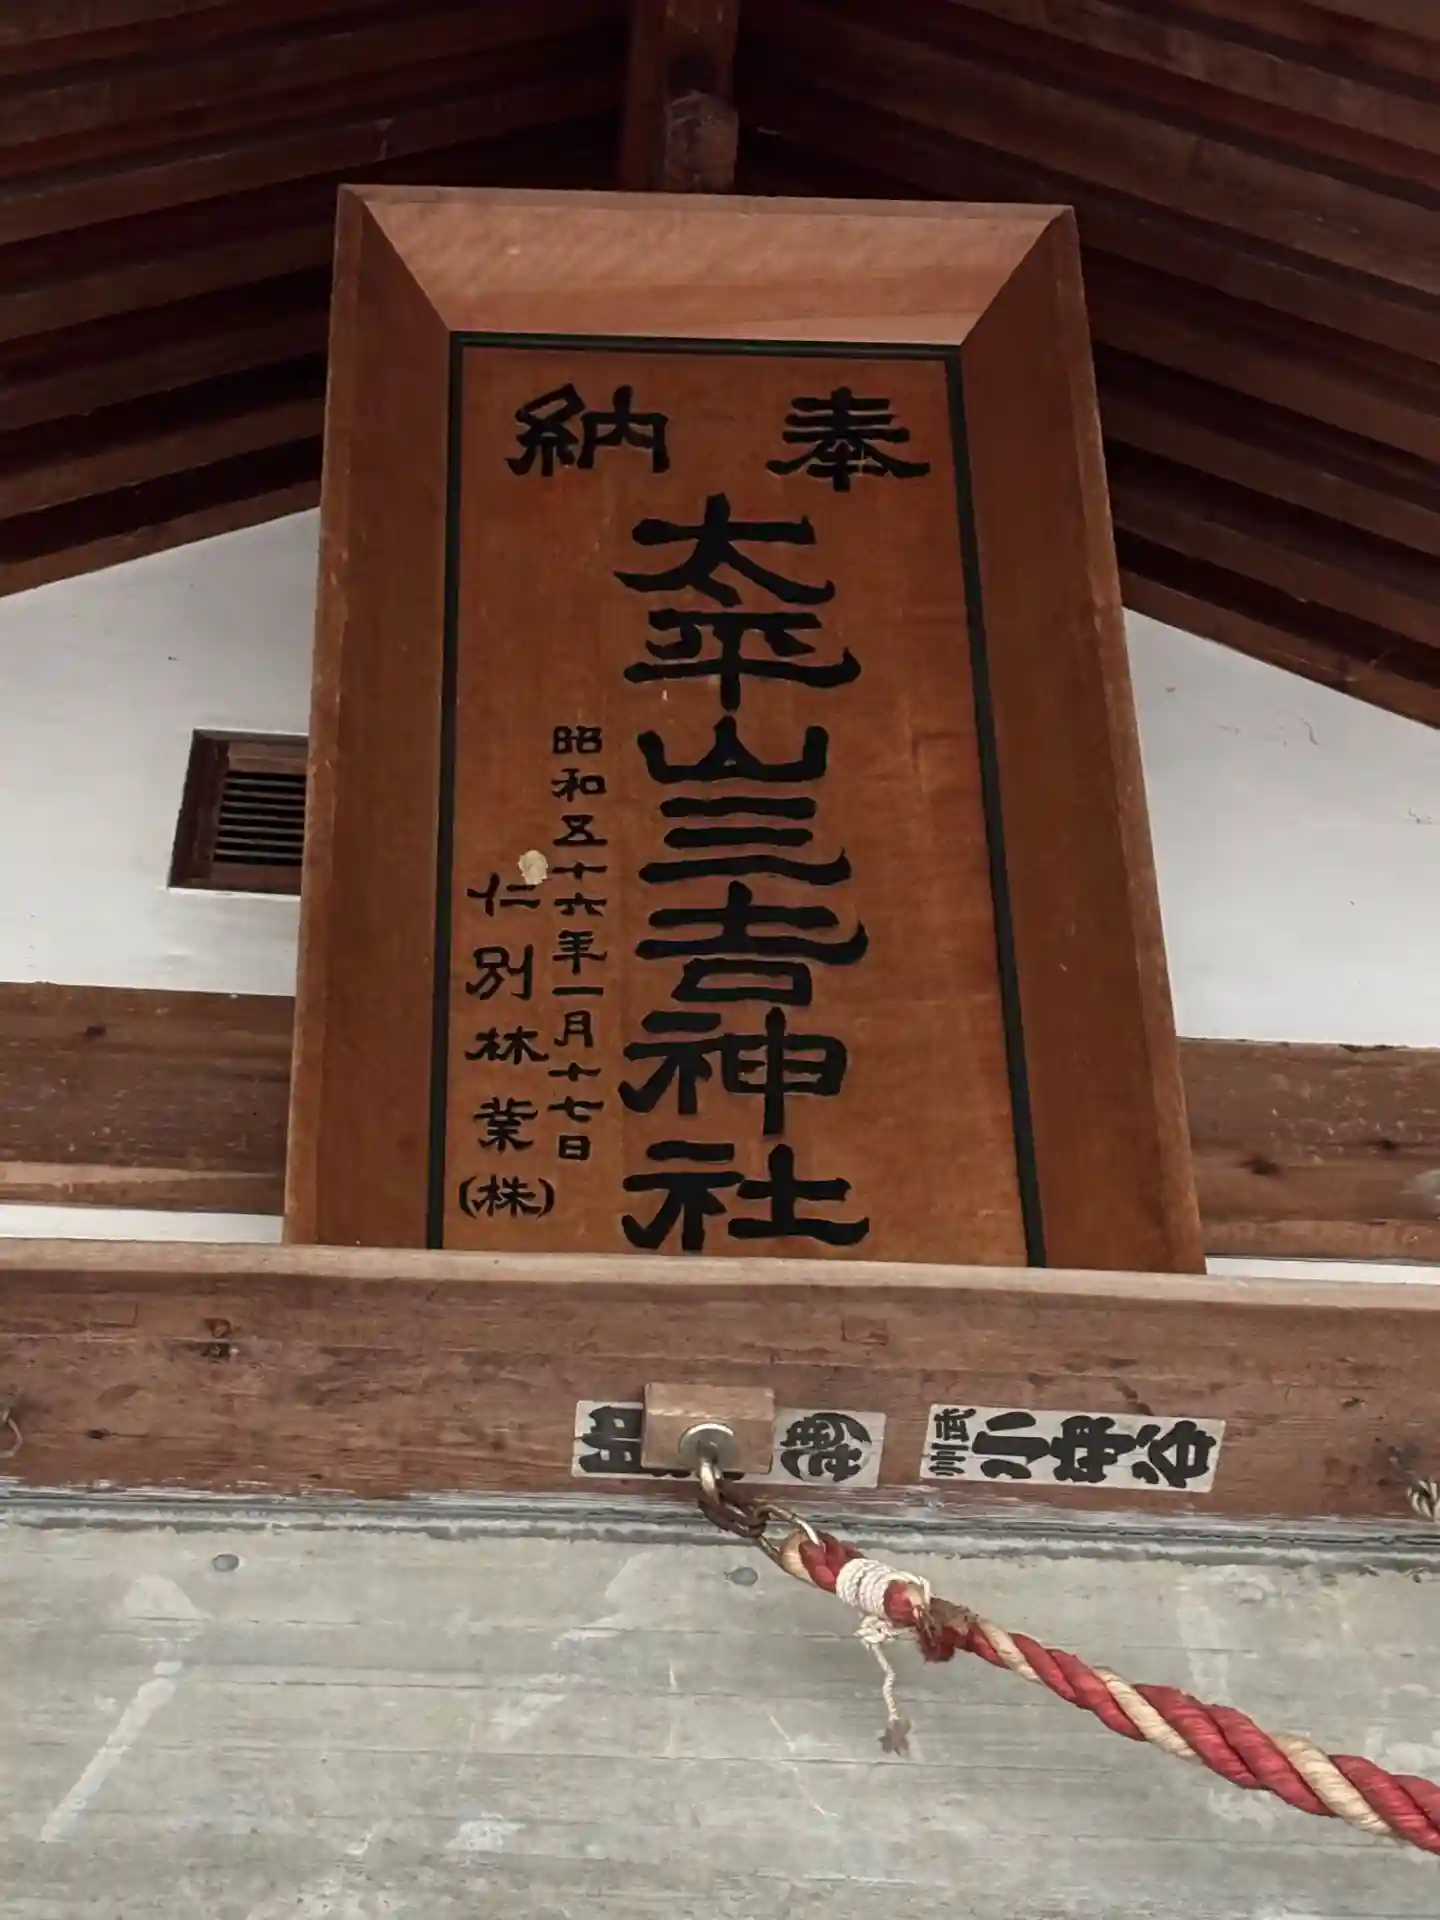 奉納
太平山三吉神社
昭和五十六年一月十七日
仁別林業(株)
武州
小串谷